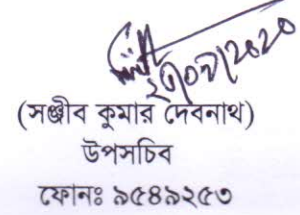 ২০/০৭/২০২০
(সঞ্জীব কুমার দেবনাথ)
উপসচিব
ফোনঃ ৯৫৪৯২৫৩